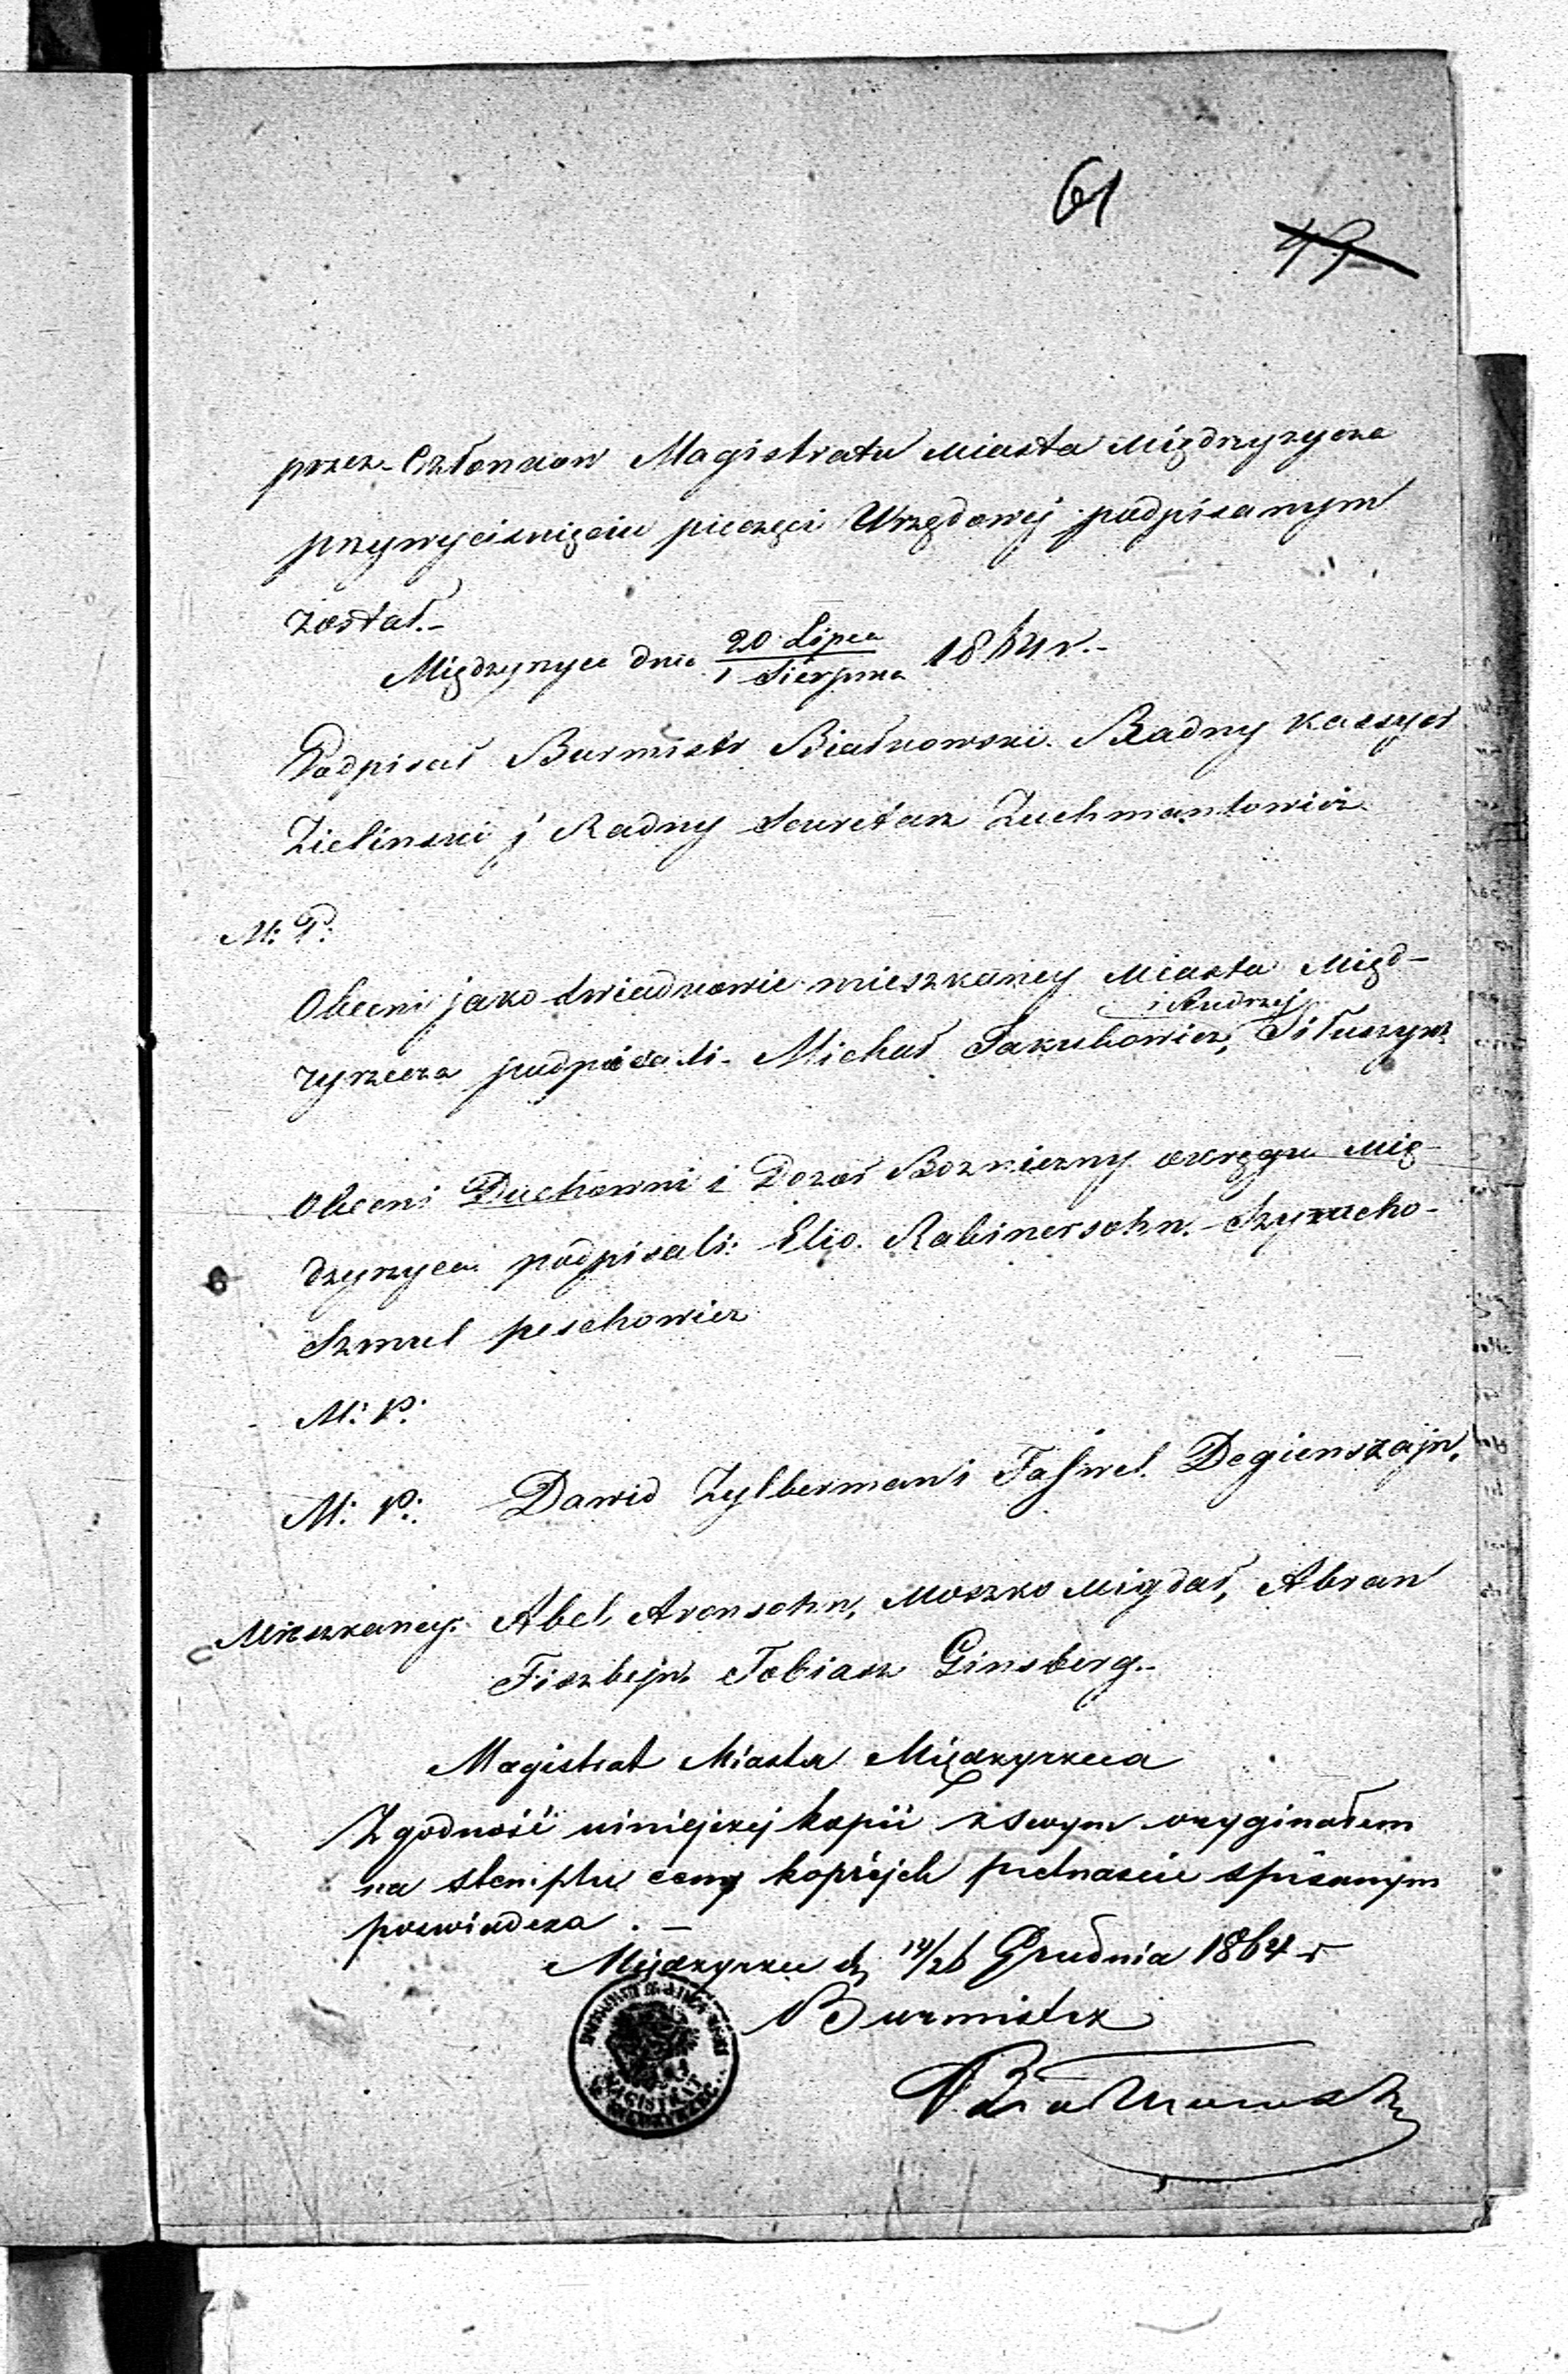 61
49
przez Członkow Magistratu Miasta Międzyrzycza
przy wyciśnięciu pieczęci Urzędowej podpisanym
został.-
Międzyrzyce dnia 20 Lipca / 1 Sierpnia 1864 r.-
Podpisał Burmistr Białkowski. Radny Kassyer
Zielinski i Radny Sekretarz Zuchmantowicz
M: P:
Obecni jako świadkowie mieszkancy Miasta Międ-
Andrzej
zyrzecza podpisali- Michał Jakubowicz,
Obecni Duchowni i Dozor Bozniczny okręgu Mię-
dzyrzyca podpisali: Elio. Rabinersohn.
Szmul Peschowicz
M: P:
M: P: Dawid Zylberman i Degienszajn.
Mieszkancy: Abel Aronsohn, Moszko Migdał, Abram
Fiszbejn Tobiasz Ginsberg.-
Magistrat Miasta Międzyrzeca
Zgodność niniejszej kopii z swym oryginałem
na stemplu ceny kopiejek pietnascie spisanym
poswiadcza . —
Międzyrzec d. 14/26 Grudnia 1864 r
Burmistrz
Białkowski
MAGISTRAT